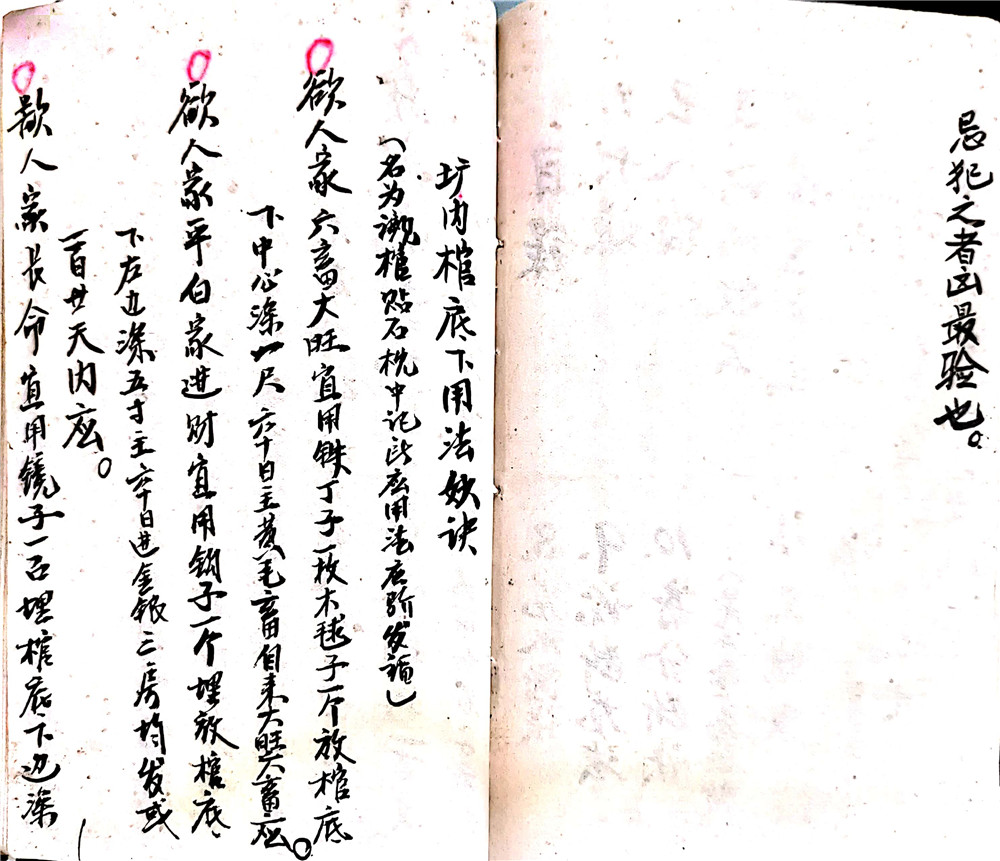 忌犯之者凶最验也。
圹内棺底下用法妙诀
(名为衬棺贴石枕中记此应用法应验发福)
欲人家六畜大旺宜用铁丁子一枚木毬子一个放棺底
下中心深一尺六十日主黄毛畜自来大旺六畜应。
欲人家平白家进财宜用钥子一个埋放棺底
下左边深五寸主六十日进金银三房均发或
一百廿天内应。
欲人家长命宜用镜子一台埋棺底下边深